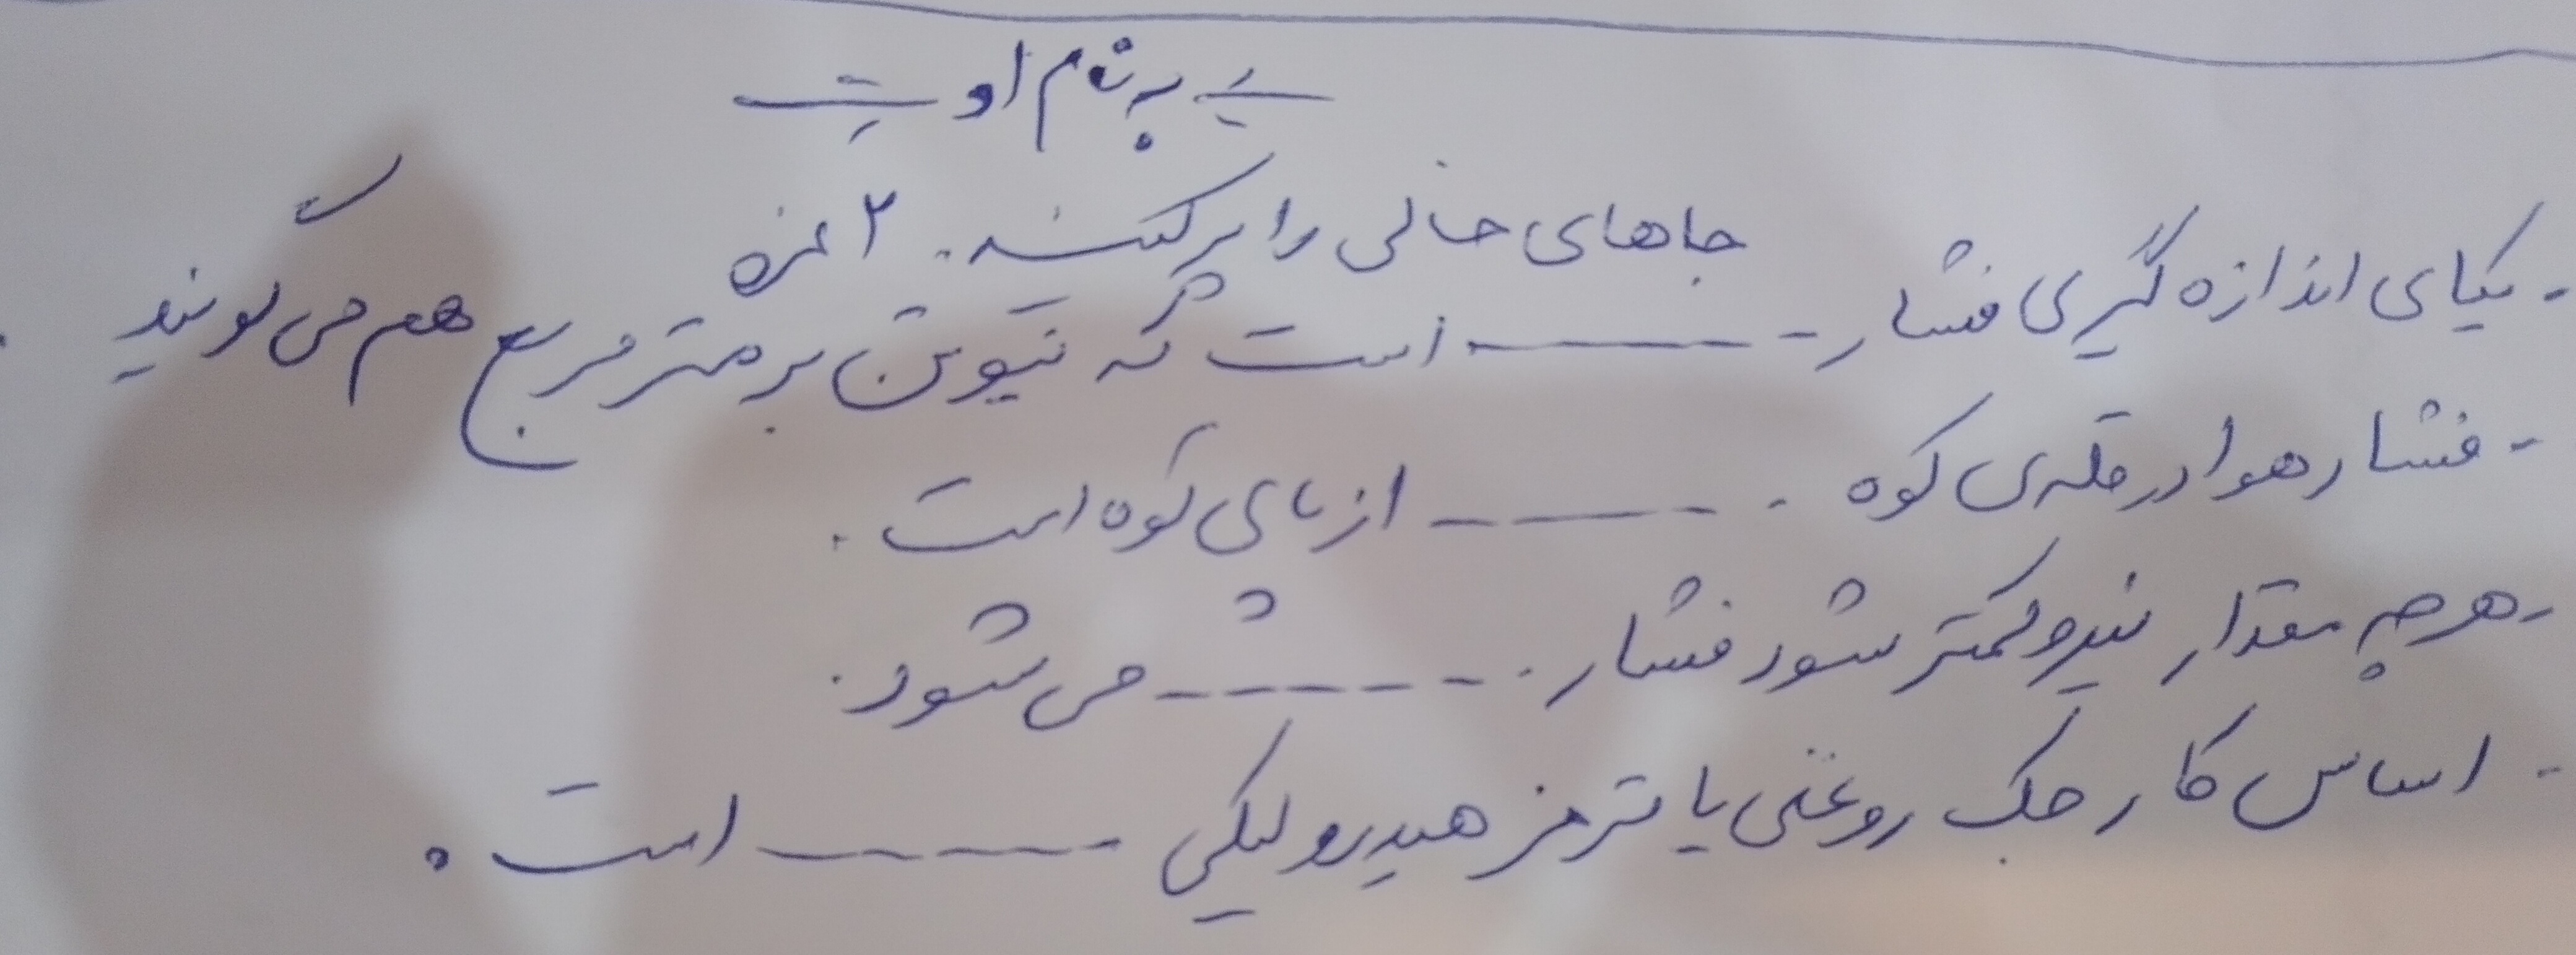 به نام او
جاهای خالی را پر کنید. ۲ نمره
- یکای اندازه گیری فشار ------ است که نیوتن بر متر مربع هم می گویند.
- فشار هوا در قله ی کوه ------ از پای کوه است.
- هر چه مقدار نیرو کمتر شود فشار ------ می شود.
- اساس کار جک روغنی یا ترمز هیدرولیکی ------ است.